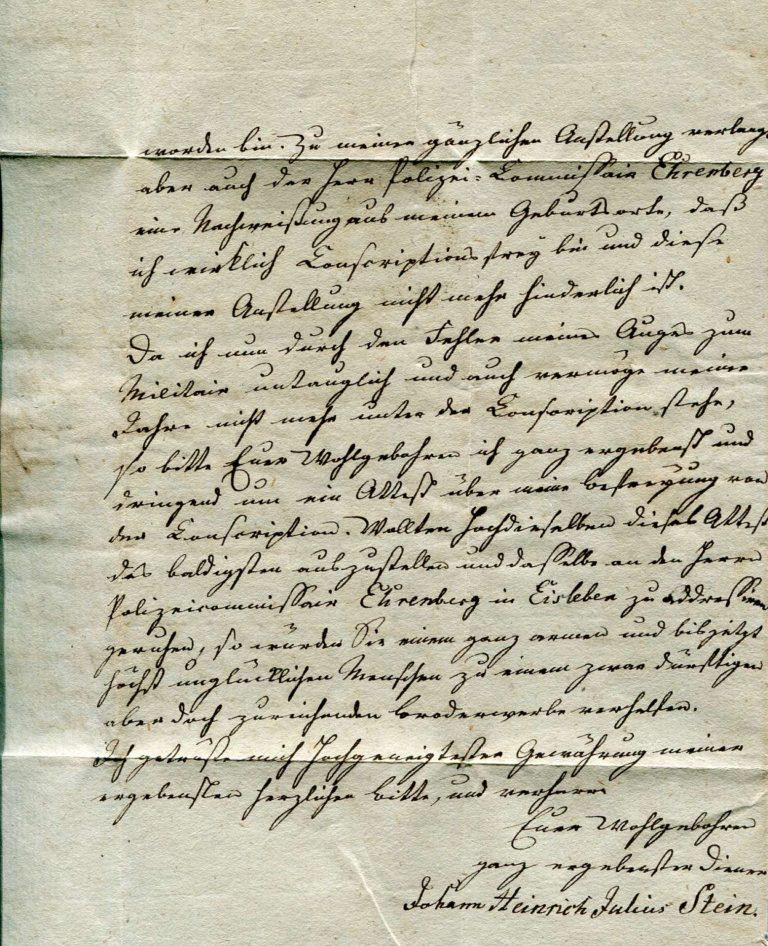 worden bin. Zu meiner gänzlichen Anstellung verlangt
aber auch der Herr Polizei-Commissair Ehrenberg
eine Nachweißung aus meinem Geburtsorte, daß
ich wirklich Conscriptionsfrey bin und diese
meiner Anstellung nicht mehr hinderlich ist.
Da ich nun durch den Fehler meines Auges zum
Militair untauglich und auch vermöge meiner
Jahre nicht mehr unter der Conscription stehe,
so bitte Euer Wohlgebohren ich ganz ergebenst und
dringend um ein Attest über meine Befreyung von
der Conscription. Wollten Hochdieselben dieses Attest
des baldigsten auszustellen und dasselbe an den Herrn
Polizeicommissair Ehrenberg in Eisleben zu addressiren
geruhen, so würden Sie einem ganz armen und bis jetzt
höchst unglücklichen Menschen zu einem zwar dürftigen
aber doch zureichenden Broderwerbe verhelfen.
Ich getröste mich Hochgeneigtester Gewährung meiner
ergebensten herzlichen Bitte, und verharre
Euer Wohlgebohren
ganz ergebenster Diener
Johann Heinrich Julius Stein.